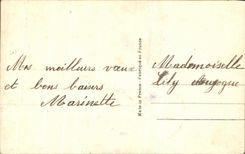 Mes meilleurs vœux
et bons baisers
Marinette
Made in France - Fabriqué en France
Mademoiselle
Lily